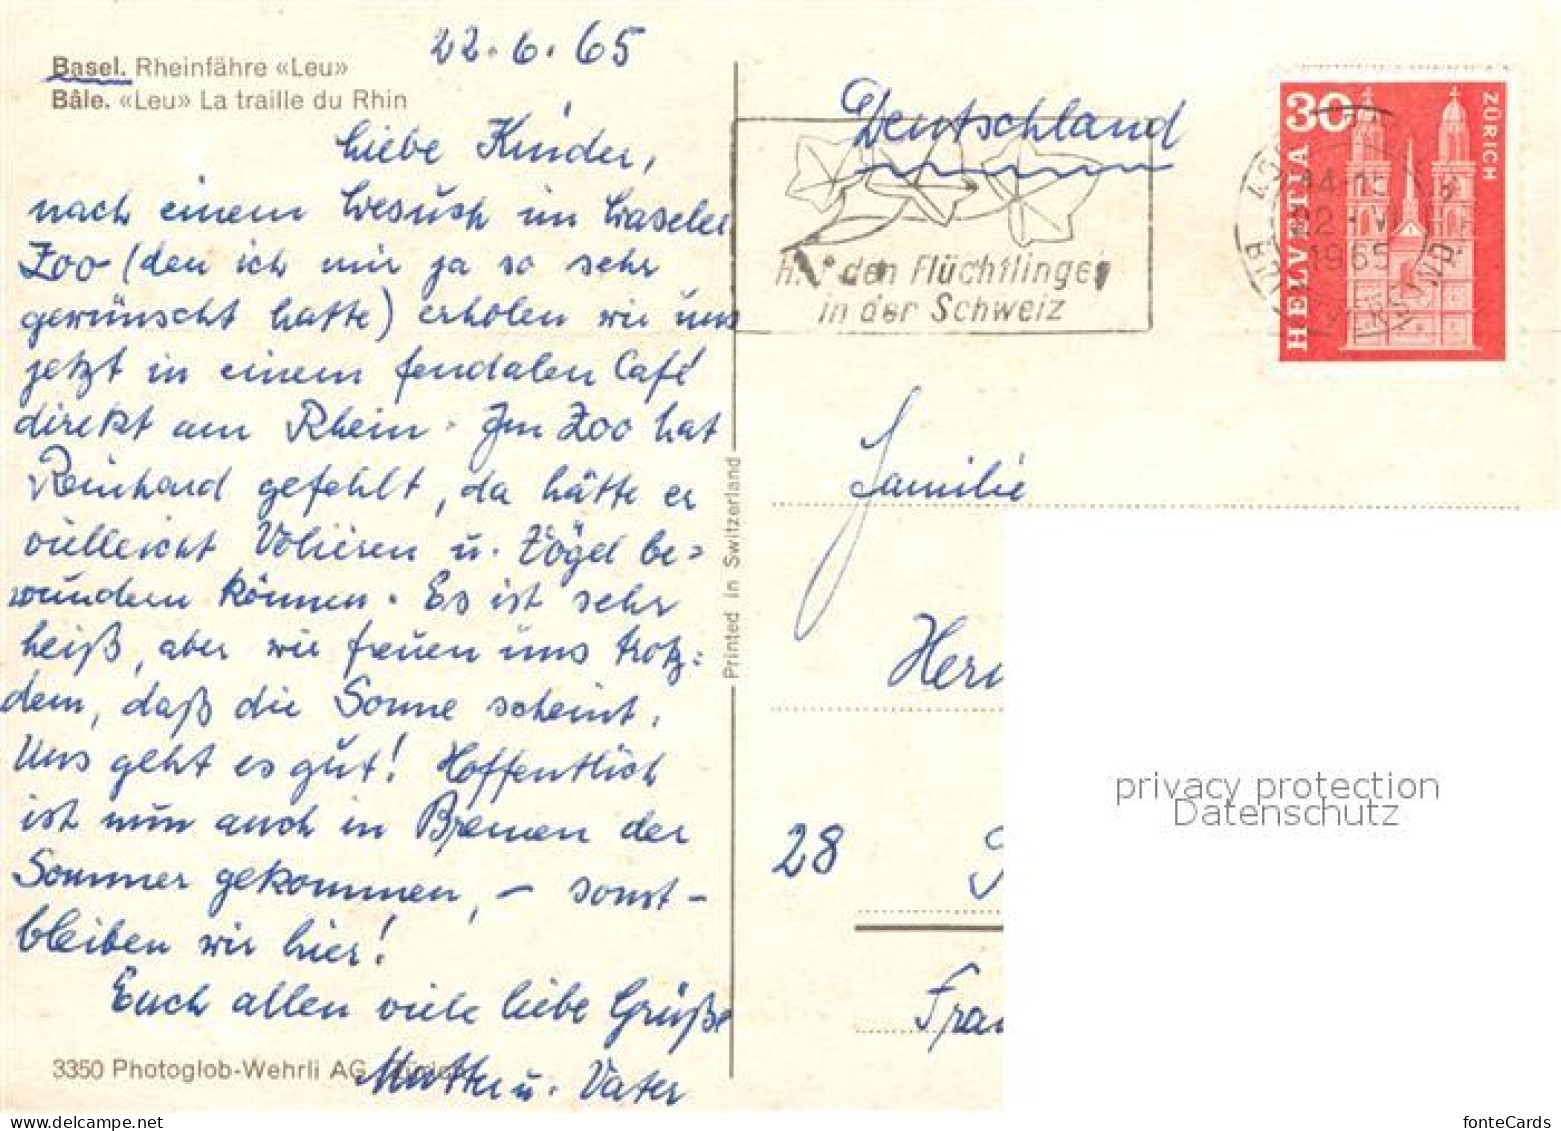 22.6.65
Basel. Rheinfähre «Leu»
Bâle. «Leu» La traille du Rhin
Liebe Kinder,
nach einem Besuch im Baseler
Zoo (den ich mir ja so sehr
gewünscht hatte) erholen wir uns
jetzt in einem feudalen Café
direkt am Rhein. Im Zoo hat
Reinhard gefehlt, da hätte er
vielleicht Volieren u. Vögel be=
wundern können. Es ist sehr
heiß, aber wir freuen uns trotz=
dem, daß die Sonne scheint.
Uns geht es gut! Hoffentlich
ist nun auch in Bremen der
Sommer gekommen, – sonst –
bleiben wir hier!
Euch allen viele liebe Grüße
Mutter u. Vater
3350 Photoglob-Wehrli AG
Printed in Switzerland
Deutschland
den Flüchtlingen
in der Schweiz
14-15
22-VI
1965
30
ZÜRICH
HELVETIA
Familie
Her
28
Fra
privacy protection
Datenschutz
fonteCards